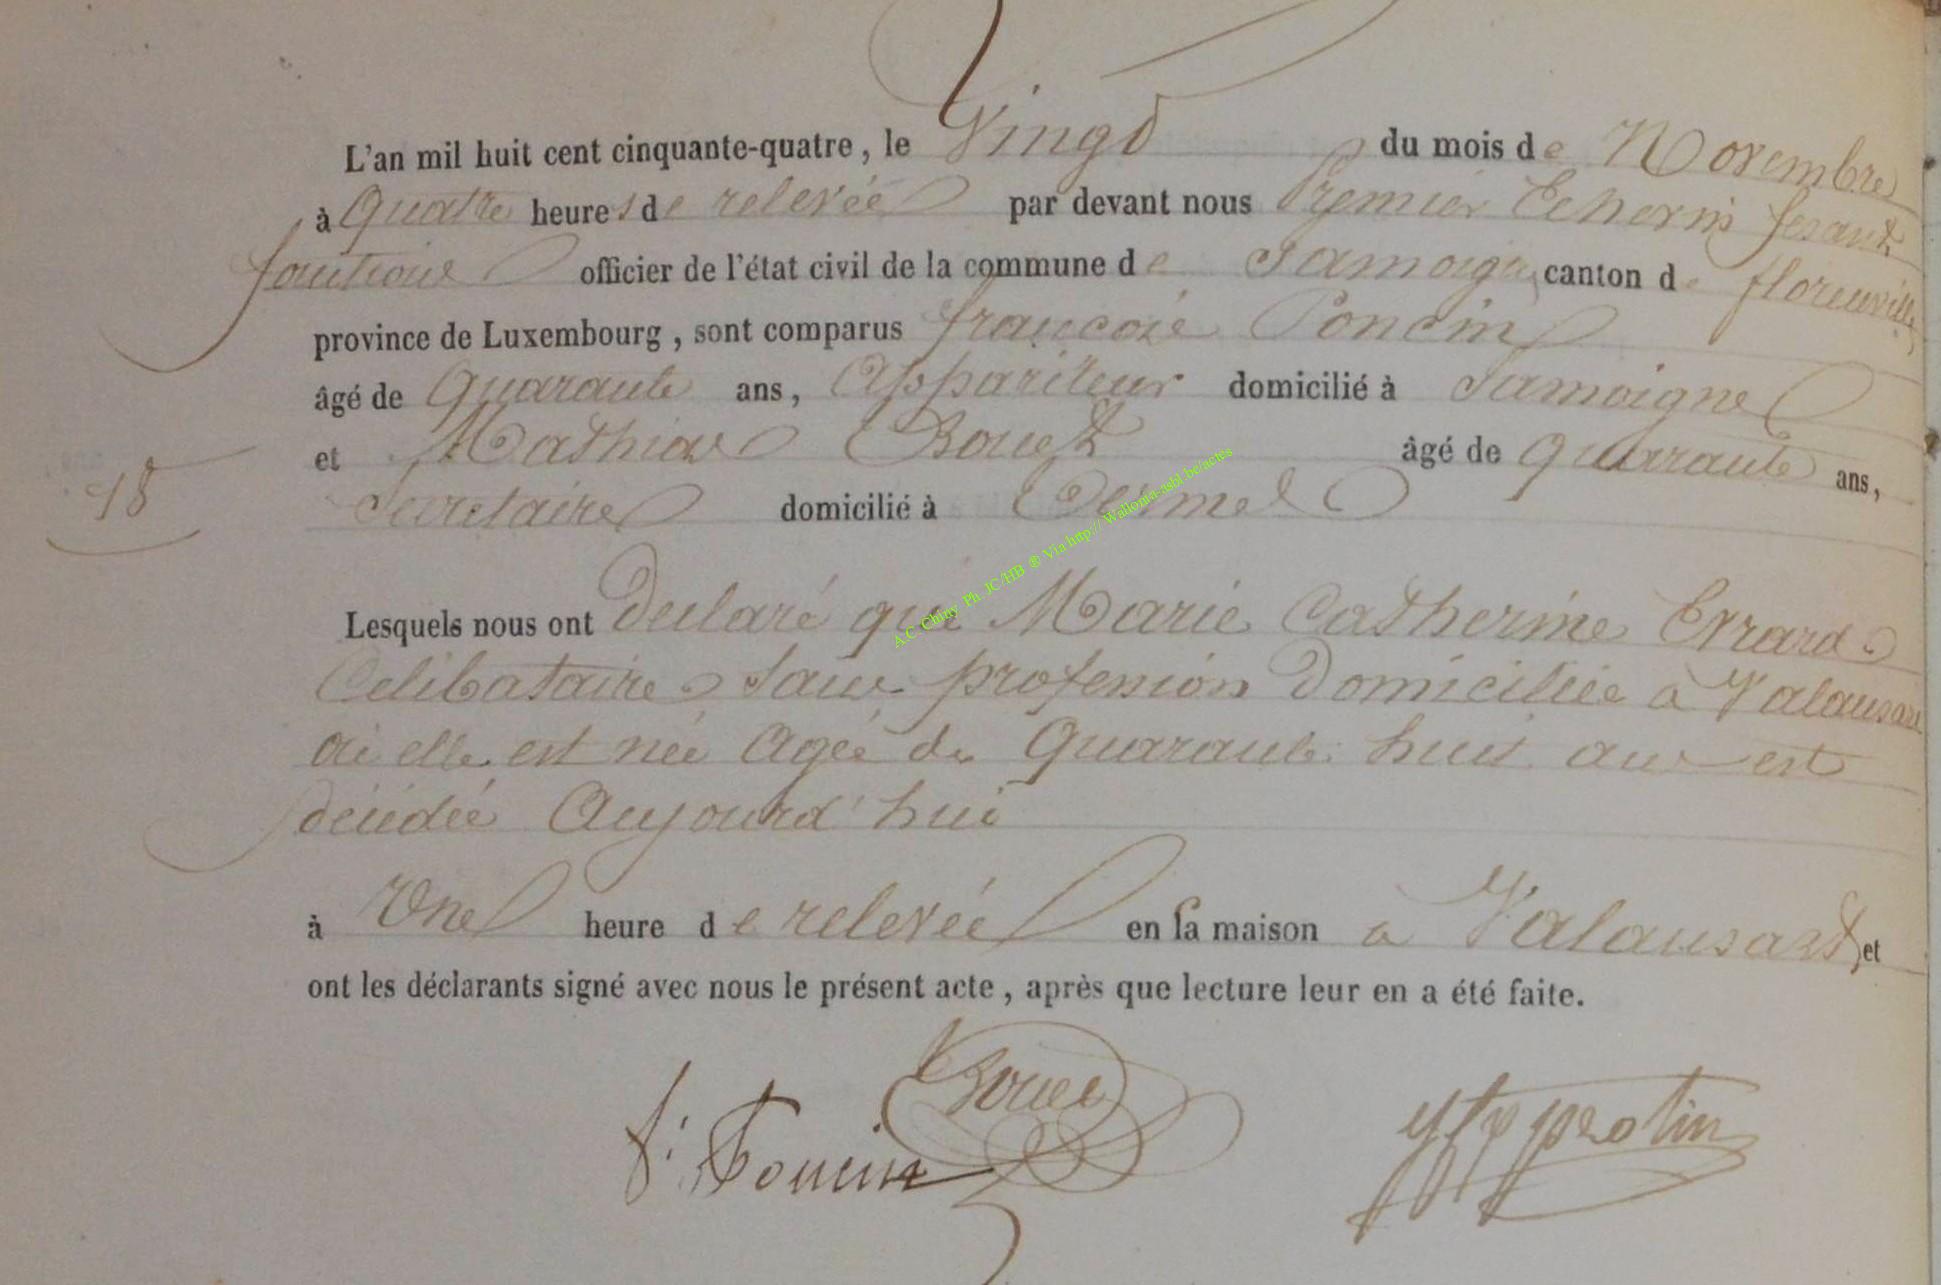 L'an mil huit cent cinquante-quatre, le Vingt du mois de Novembre
à Quatre heures de relevée par devant nous Premier Echevin fesant
fonctions officier de l'état civil de la commune de Jamoigne, canton de florenville
province de Luxembourg, sont comparus françois Poncin
âgé de Quarante ans, Appariteur domicilié à Jamoigne
et Mathias Bouet âgé de Quarante ans,
18
Secretaire domicilié à Termel
Lesquels nous ont declaré que Marie Catherine Evrard
Celibataire sans profession Domiciliée à Valansart
où elle est née Agée de Quarante huit ans est
décédée Aujourd'hui
à Une heure de relevée en sa maison a Valansart, et
ont les déclarants signé avec nous le présent acte, après que lecture leur en a été faite.
Bouet
f. Poncin
A.C. Chiny Ph. JC/HB ® Via http:// Wallonia-asbl.be/actes